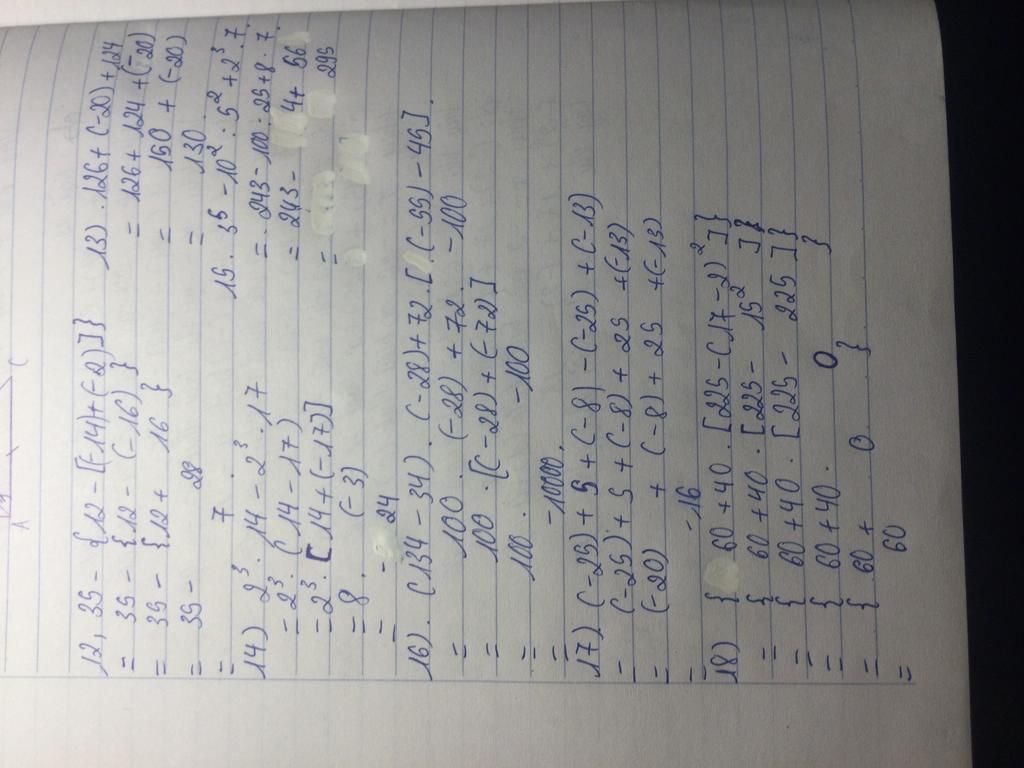 A C
12, 35 - {12 - [(-14) + (-2)]}
= 35 - {12 - (-16) }
= 35 - {12 + 16 }
= 35 - 28
= 7
13) . 126 + (-20) + 124
= 126 + 124 + (-20)
= 150 + (-20)
= 130
14) 2³ . 14 - 2³ . 17
= 2³ . (14 - 17)
= 2³ . [14 + (-17)]
= 8 . (-3)
= - 24
15. 3⁵ - 10² : 5² + 2³ . 7
= 243 - 100 : 25 + 8 . 7
= 243 - 4 + 56
= 295
16) . (134 - 34) . (-28) + 72 . [(-55) - 45]
= 100 . (-28) + 72 . -100
= 100 . [(-28) + (-72)]
= 100 . -100
= -10000.
17) (-25) + 5 + (-8) - (-25) + (-13)
= (-25) + 5 + (-8) + 25 + (-13)
= (-20) + (-8) + 25 + (-13)
= -16
18) { 60 + 40 . [225 - (17 - 2)²]}
= { 60 + 40 . [225 - 15² ]}
= { 60 + 40 . [225 - 225 ]}
= { 60 + 40 . 0 }
= { 60 + 0 }
= 60